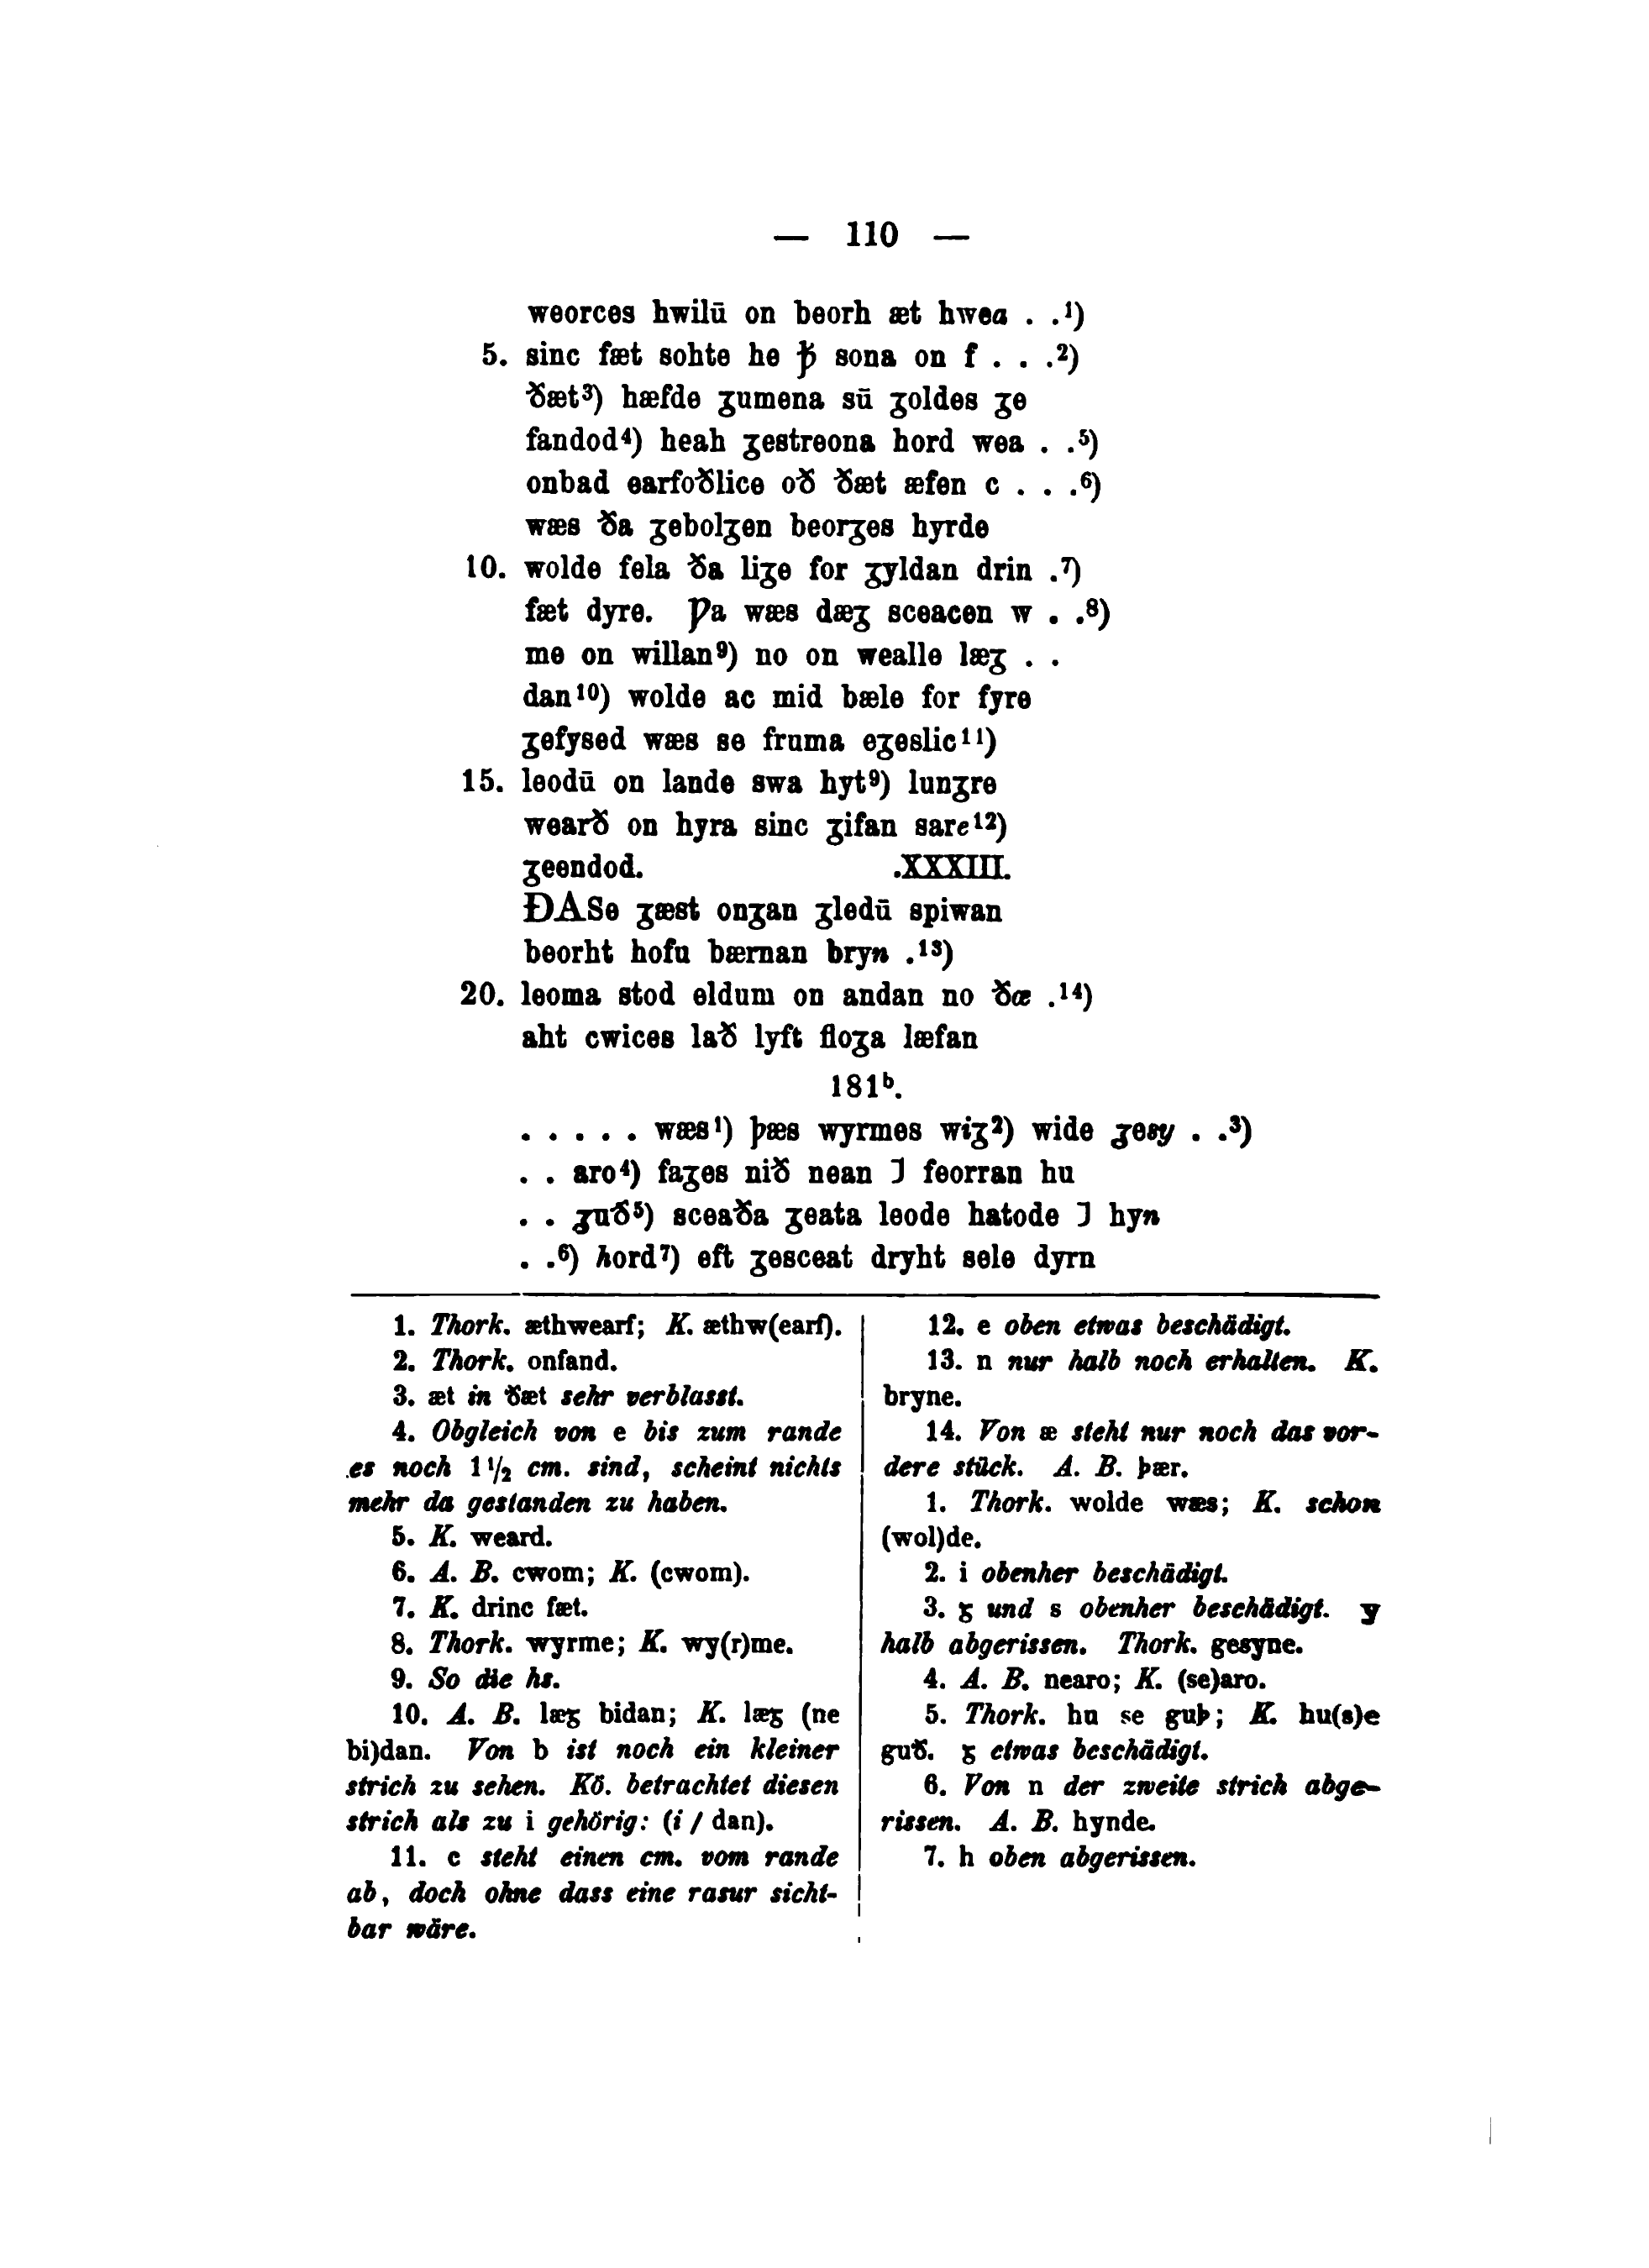 — 110 —
weorces hwilū on beorh æt hwea . .¹)
5. sinc fæt sohte he ꝥ sona on f . . .²)
ðæt³) hæfde ʒumena sū ʒoldes ʒe
fandod⁴) heah ʒestreona hord wea . .⁵)
onbad earfoðlice oð ðæt æfen c . . .⁶)
wæs ða ʒebolʒen beorʒes hyrde
10. wolde fela ða liʒe for ʒyldan drin .⁷)
fæt dyre. Þa wæs dæʒ sceacen w . .⁸)
me on willan⁹) no on wealle læʒ . .
dan¹⁰) wolde ac mid bæle for fyre
ʒefysed wæs se fruma eʒeslic¹¹)
15. leodū on lande swa hyt⁹) lunʒre
wearð on hyra sinc ʒifan sare¹²)
ʒeendod. .XXXIII.
ÐASe ʒæst onʒan ʒledū spiwan
beorht hofu bærnan bryn .¹³)
20. leoma stod eldum on andan no ðæ .¹⁴)
aht cwices lað lyft floʒa læfan
181ᵇ.
. . . . . wæs¹) þæs wyrmes wiʒ²) wide ʒesy . .³)
. . aro⁴) faʒes nið nean ⁊ feorran hu
. . ʒuð⁵) sceaða ʒeata leode hatode ⁊ hyn
. .⁶) hord⁷) eft ʒesceat dryht sele dyrn
1. Thork. æthwearf; K. æthw(earf).
2. Thork. onfand.
3. æt in ðæt sehr verblasst.
4. Obgleich von e bis zum rande
es noch 1½ cm. sind, scheint nichts
mehr da gestanden zu haben.
5. K. weard.
6. A. B. cwom; K. (cwom).
7. K. drinc fæt.
8. Thork. wyrme; K. wy(r)me.
9. So die hs.
10. A. B. læʒ bidan; K. læʒ (ne
bi)dan. Von b ist noch ein kleiner
strich zu sehen. Kö. betrachtet diesen
strich als zu i gehörig: (i / dan).
11. c steht einen cm. vom rande
ab, doch ohne dass eine rasur sicht-
bar wäre.
12. e oben etwas beschädigt.
13. n nur halb noch erhalten. K.
bryne.
14. Von æ steht nur noch das vor-
dere stück. A. B. þær.
1. Thork. wolde wæs; K. schon
(wol)de.
2. i obenher beschädigt.
3. ʒ und s obenher beschädigt. y
halb abgerissen. Thork. gesyne.
4. A. B. nearo; K. (se)aro.
5. Thork. hu se guþ; K. hu(s)e
guð. ʒ etwas beschädigt.
6. Von n der zweite strich abge-
rissen. A. B. hynde.
7. h oben abgerissen.